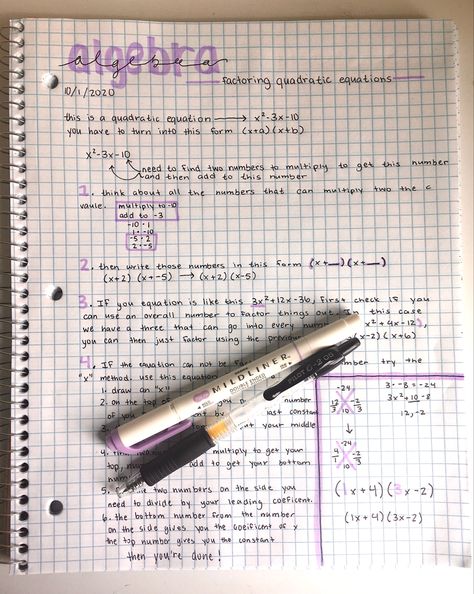 algebra
factoring quadratic equations
10/1/2020
this is a quadratic equation → x²-3x-10
you have to turn into this form (x+a)(x+b)
x²-3x-10
need to find two numbers to multiply to get this number
and then add to this number
1. think about all the numbers that can multiply two the c
vaule.
multiply to -10
add to -3
-10 · 1
1 · -10
-5 · 2
2 · -5
2. then write those numbers in this form (x+_)(x+_)
(x+2)(x+-5) → (x+2)(x-5)
3. If you equation is like this 3x²+12x-36, first check if you
can use an overall number to factor things out. In this case
we have a three that can go into every x²+4x-12),
you can then just factor using the x-2)(x+6)
4. IF the equation can not be number try the
"x" method. use this
1. draw an "x"
2. on the top of number
of you by last constant
3. your middle
4. multiply to get your
top, add to get your bottom
5. two numbers on the side you
need to divide by your leading coeficent.
6. the bottom number from the number
on the side gives you the coeificent of x
the top number gives you the constant
then you're done!
-24
12/3 -2/3
10
3·-8=-24
3x²+10-8
12,-2
-24
4/1 -2/3
10
(1x+4)(3x-2)
(1x+4)(3x-2)
MILDLINER
DOUBLE ENDED
PILOT G-2 05